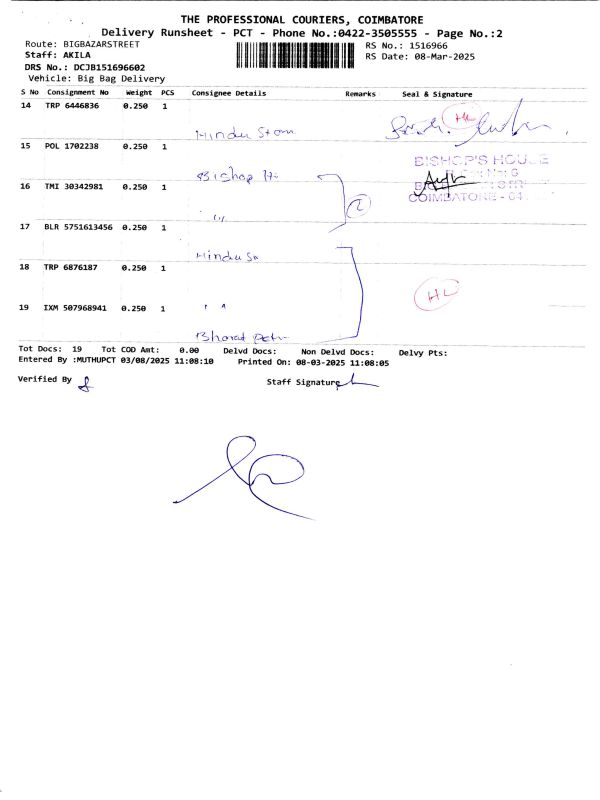 THE PROFESSIONAL COURIERS, COIMBATORE
Delivery Runsheet - PCT - Phone No.:0422-3505555 - Page No.:2
Route: BIGBAZARSTREET
RS No.: 1516966
Staff: AKILA
RS Date: 08-Mar-2025
DRS No.: DCJB151696602
Vehicle: Big Bag Delivery
S No Consignment No Weight PCS Consignee Details Remarks Seal & Signature
14 TRP 6446836 0.250 1
HL
Hindu
15 POL 1702238 0.250 1
BISHOP'S HOUSE
Bishop
16 TMI 30342981 0.250 1
2
COIMBATORE - 64
17 BLR 5751613456 0.250 1
Hindu
18 TRP 6876187 0.250 1
HL
19 IXM 507968941 0.250 1
" "
Bharat
Tot Docs: 19 Tot COD Amt: 0.00 Delvd Docs: Non Delvd Docs: Delvy Pts:
Entered By :MUTHUPCT 03/08/2025 11:08:10 Printed On: 08-03-2025 11:08:05
Verified By
Staff Signature